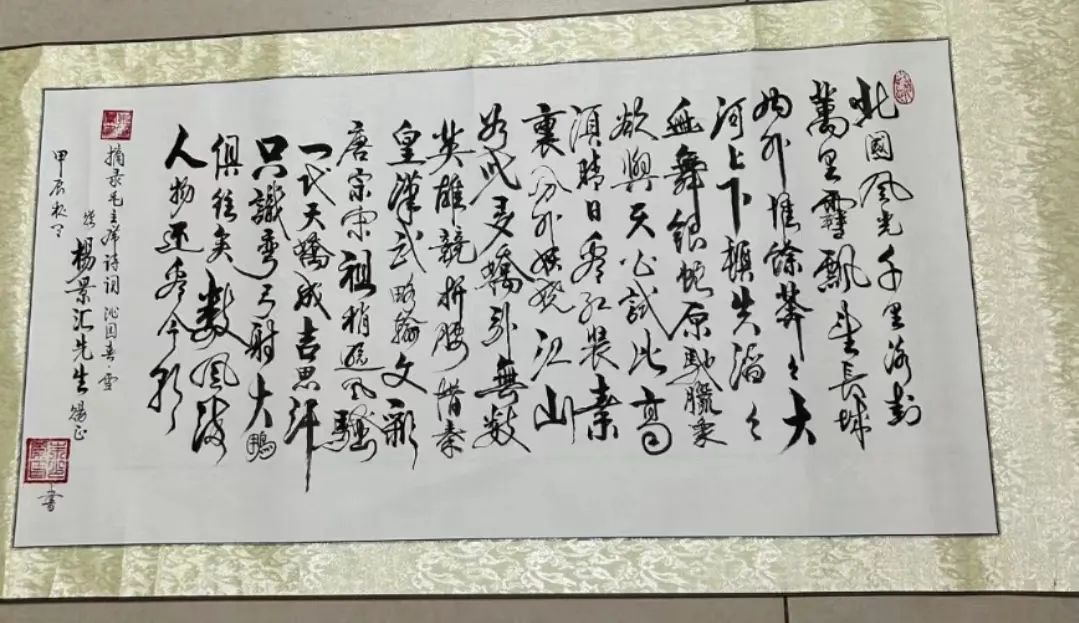 北國风光千里冰封
萬里雪飄望長城
内外惟餘莽々大
河上下頓失滔々
舞銀蛇原馳臘象
欲與天公試比高
須晴日看红裝素
裹分外妖娆江山
如此多嬌引無數
英雄競折腰惜秦
皇漢武略輸文彩
唐宗宋祖稍遜风騷
一代天驕成吉思汗
只識彎弓射大鵰
俱往矣數风流
人物还看今朝
摘录毛主席诗词 沁园春·雪
楊景汇先生 正
甲辰秋
書